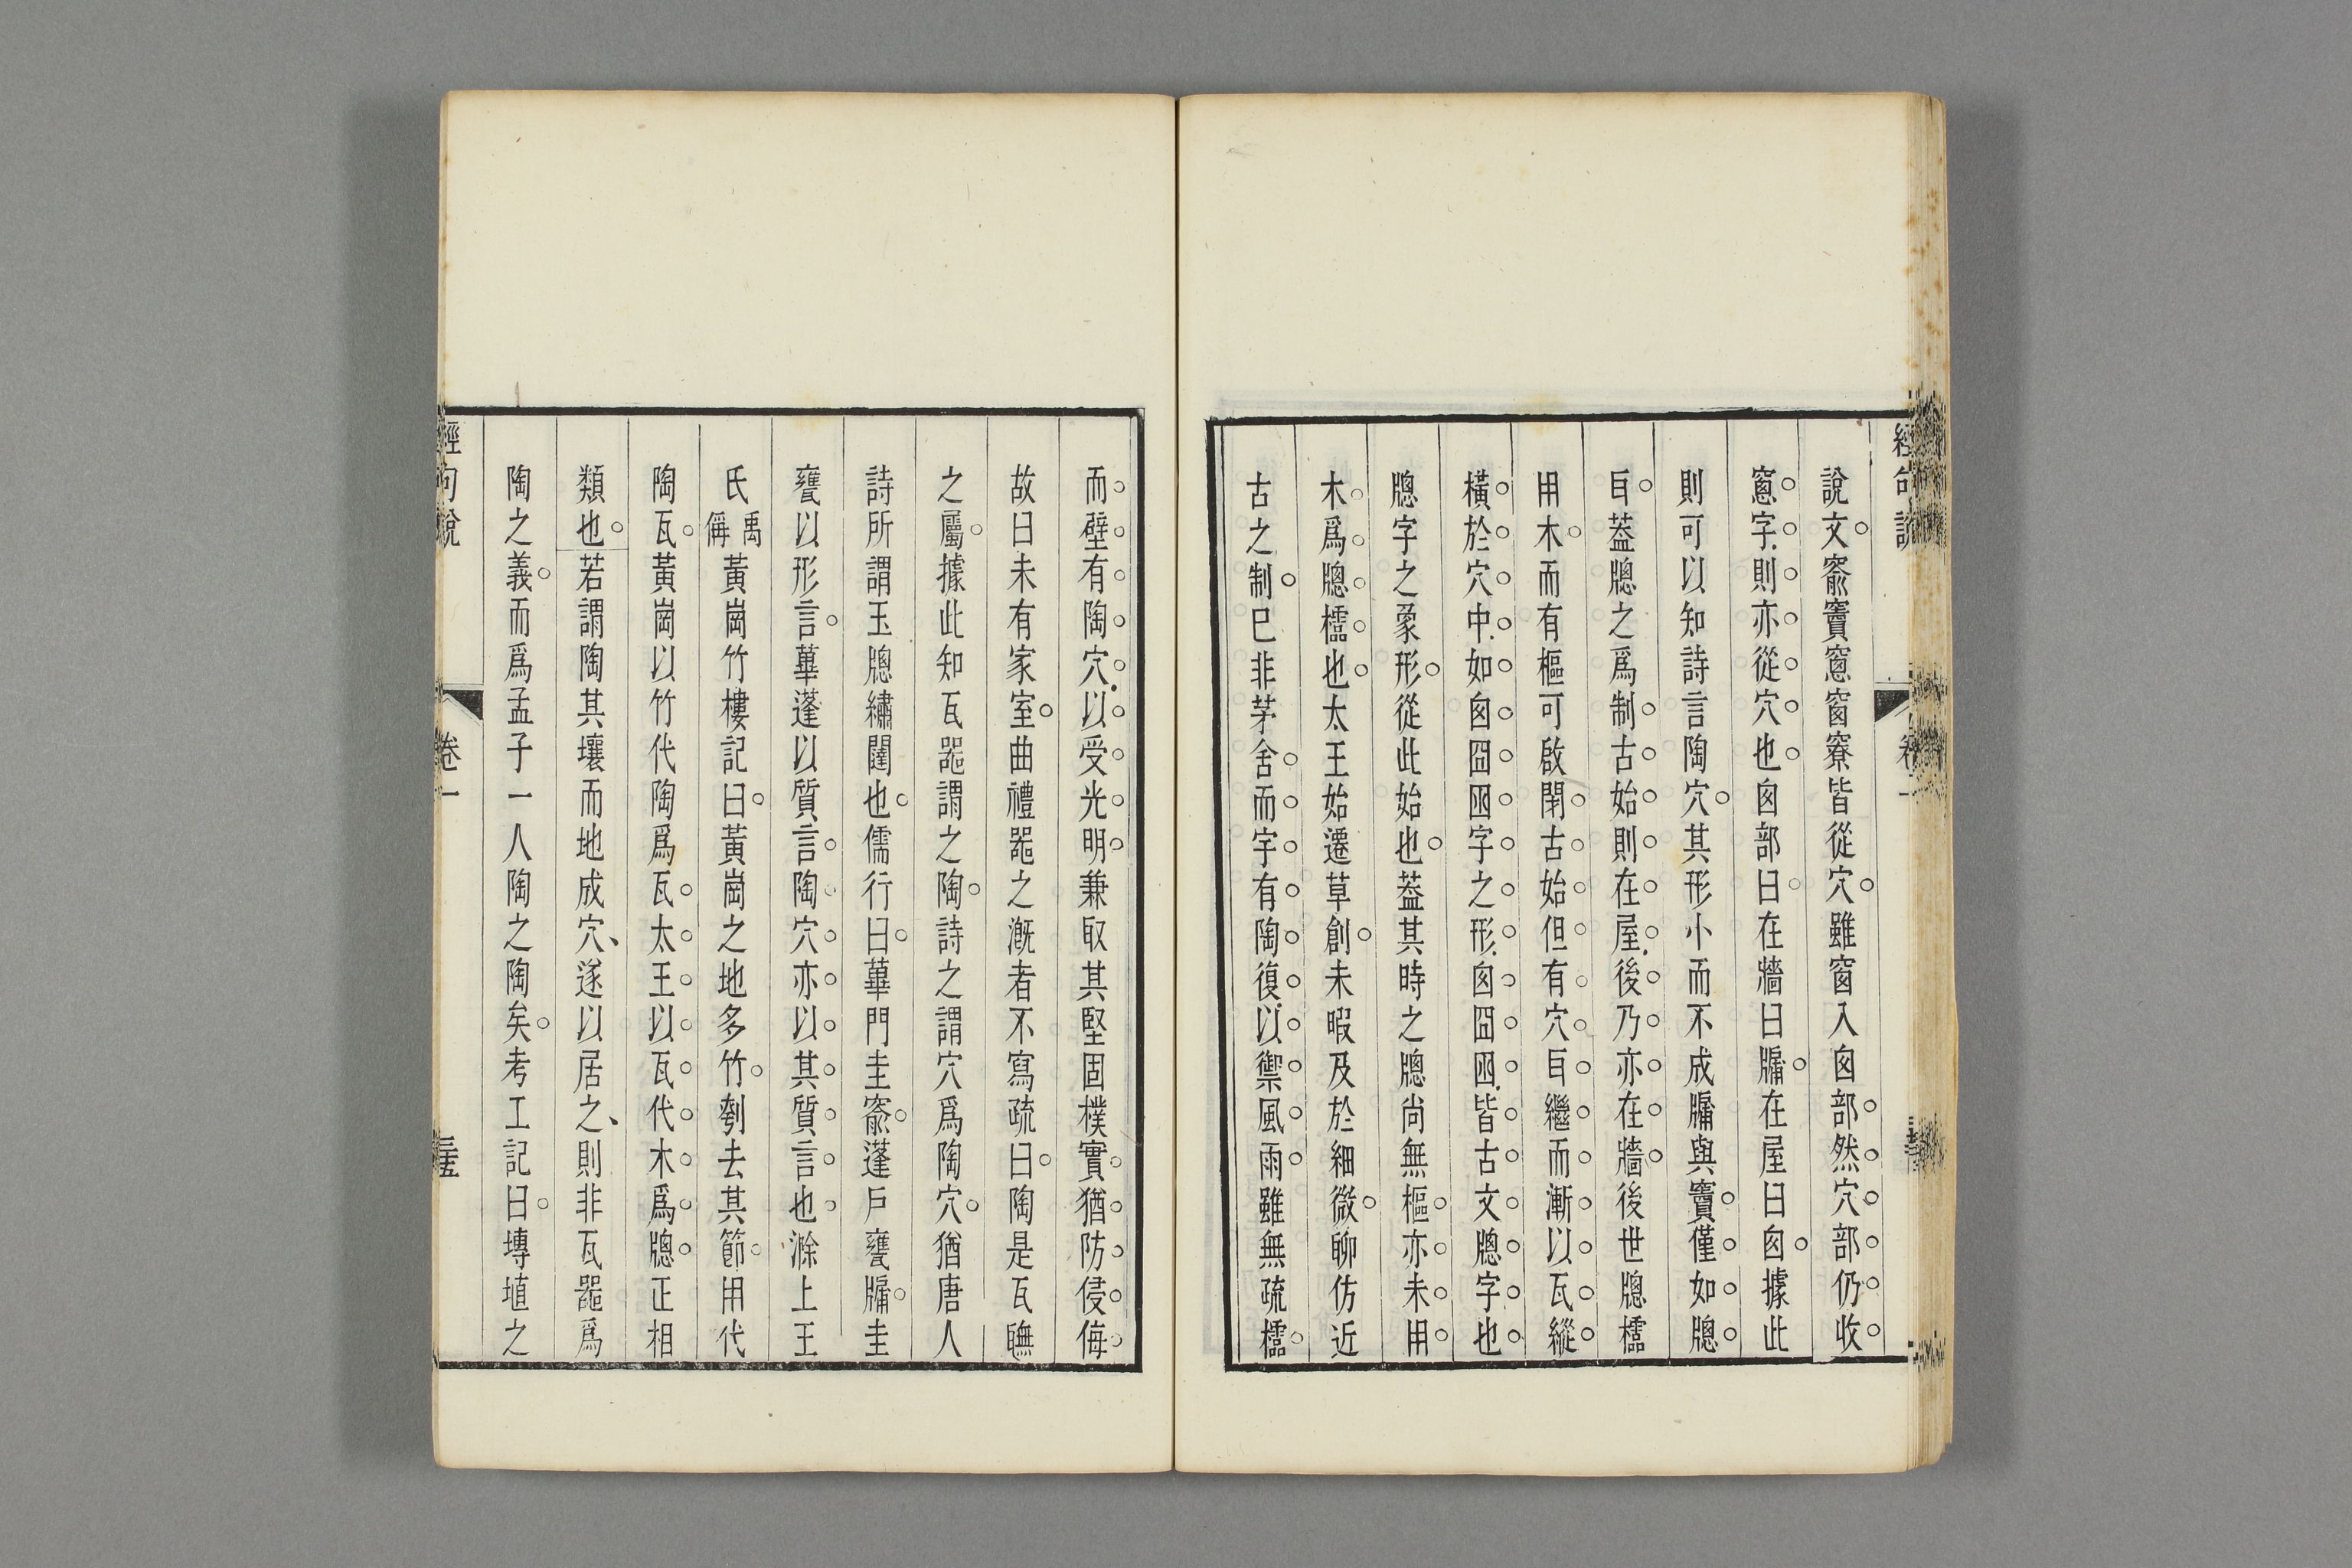 經句說
卷一
說文窬竇窻窗窾皆從穴雖窗入囪部然穴部仍收
窻字則亦從穴也囪部曰在牆曰牖在屋曰囪據此
則可以知詩言陶穴其形小而不成牖與竇僅如牕
㠯葢牕之爲制古始則在屋後乃亦在牆後世牕櫺
用木而有樞可啟閉古始但有穴㠯繼而漸以瓦縱
橫於穴中如囪囧囪字之形囪囧囪皆古文牕字也
牕字之象形從此始也葢其時之牕尚無樞亦未用
木爲牕櫺也太王始遷草創未暇及於細微聊仿近
古之制巳非茅舍而宇有陶復以禦風雨雖無疏櫺
而壁有陶穴以受光明兼取其堅固樸實猶防侵侮
故曰未有家室曲禮器之溉者不寫疏曰陶是瓦甒
之屬據此知瓦器謂之陶詩之謂穴爲陶穴猶唐人
詩所謂玉牕繡闥也儒行曰蓽門圭窬蓬戶甕牖圭
甕以形言蓽蓬以質言陶穴亦以其質言也滁上王
氏禹偁黃崗竹樓記曰黃崗之地多竹刳去其節用代
陶瓦黃崗以竹代陶爲瓦太王以瓦代木爲牕正相
類也若謂陶其壤而地成穴遂以居之則非瓦器爲
陶之義而爲孟子一人陶之陶矣考工記曰塼埴之
經句說
卷一
二五